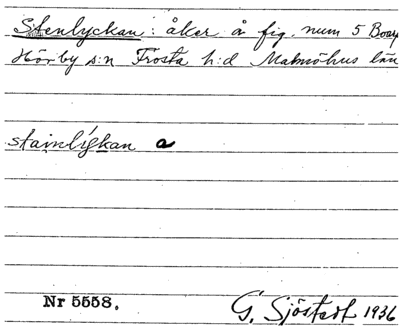 Stenlyckan: åker å fig. num 5 Boay
Hörby s:n Frosta h:d Malmöhus län
stainlýkan a
Nr 5558.
G. Sjöstedt 1936